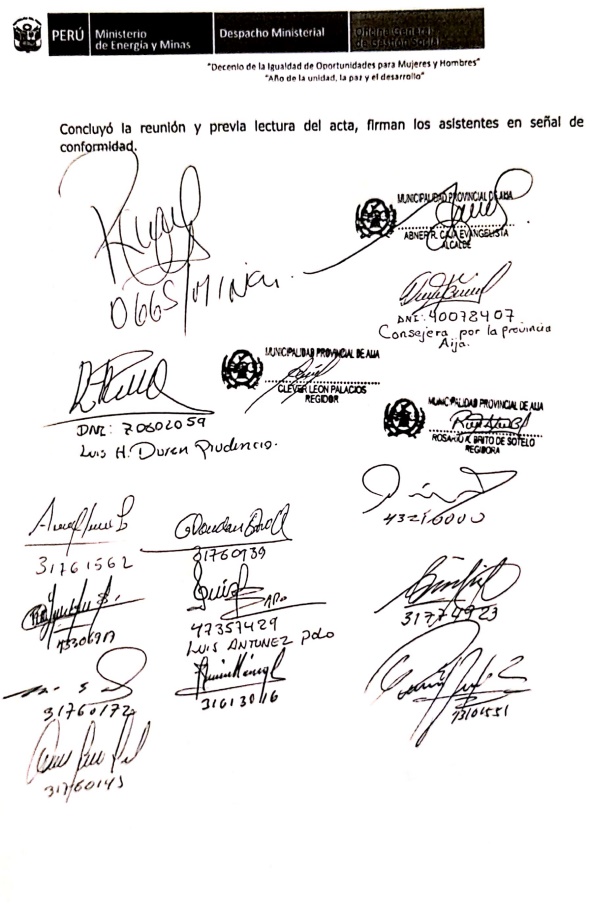 PERÚ
Ministerio
de Energía y Minas
Despacho Ministerial
Oficina General
de Gestión Social
"Decenio de la Igualdad de Oportunidades para Mujeres y Hombres"
"Año de la unidad, la paz y el desarrollo"
Concluyó la reunión y previa lectura del acta, firman los asistentes en señal de
conformidad.
MUNICIPALIDAD PROVINCIAL DE AIJA
ABNER R. CAJA EVANGELISTA
ALCALDE
OGGS/MINEM.
DNI: 40078407
Consejera por la provincia
Aija.
MUNICIPALIDAD PROVINCIAL DE AIJA
CLEVER LEON PALACIOS
REGIDOR
DNI: 70602059
Luis H. Duran Prudencio.
MUNICIPALIDAD PROVINCIAL DE AIJA
ROSARIO K. BRITO DE SOTELO
REGIDORA
43210000
31761562
31760939
31774923
47357429
LUIS ANTUNEZ POLO
31760172
31613016
73101551
31760143